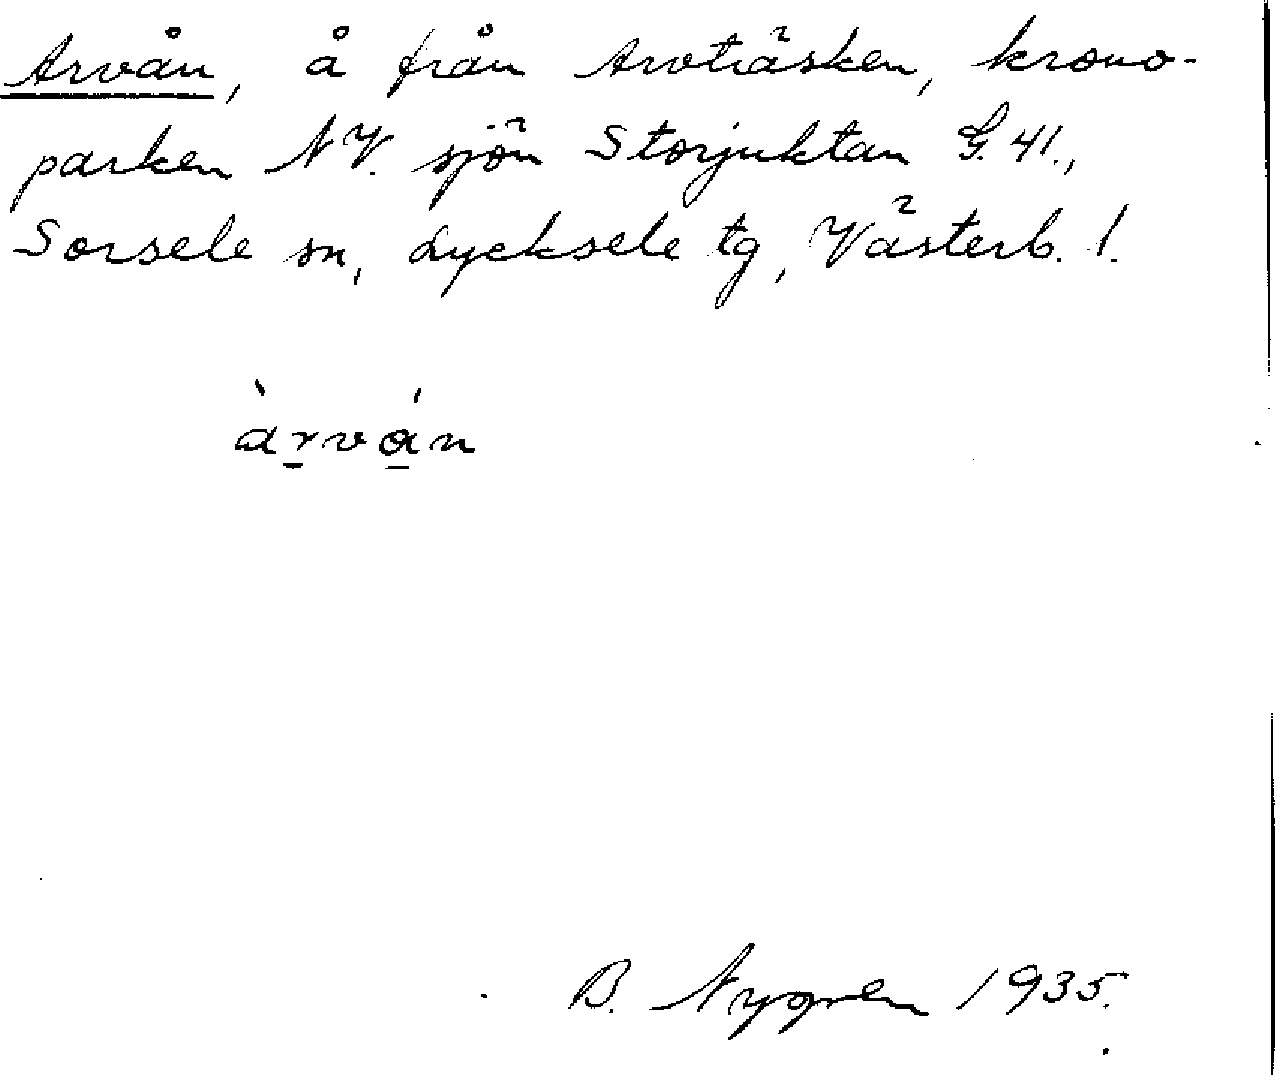 Arvån, å från Arvträsken, krono-
parken N V. sjön Storjuktan G. 41.,
Sorsele sn, Lycksele tg, Västerb. l.
àrván
B. Nygren 1935.